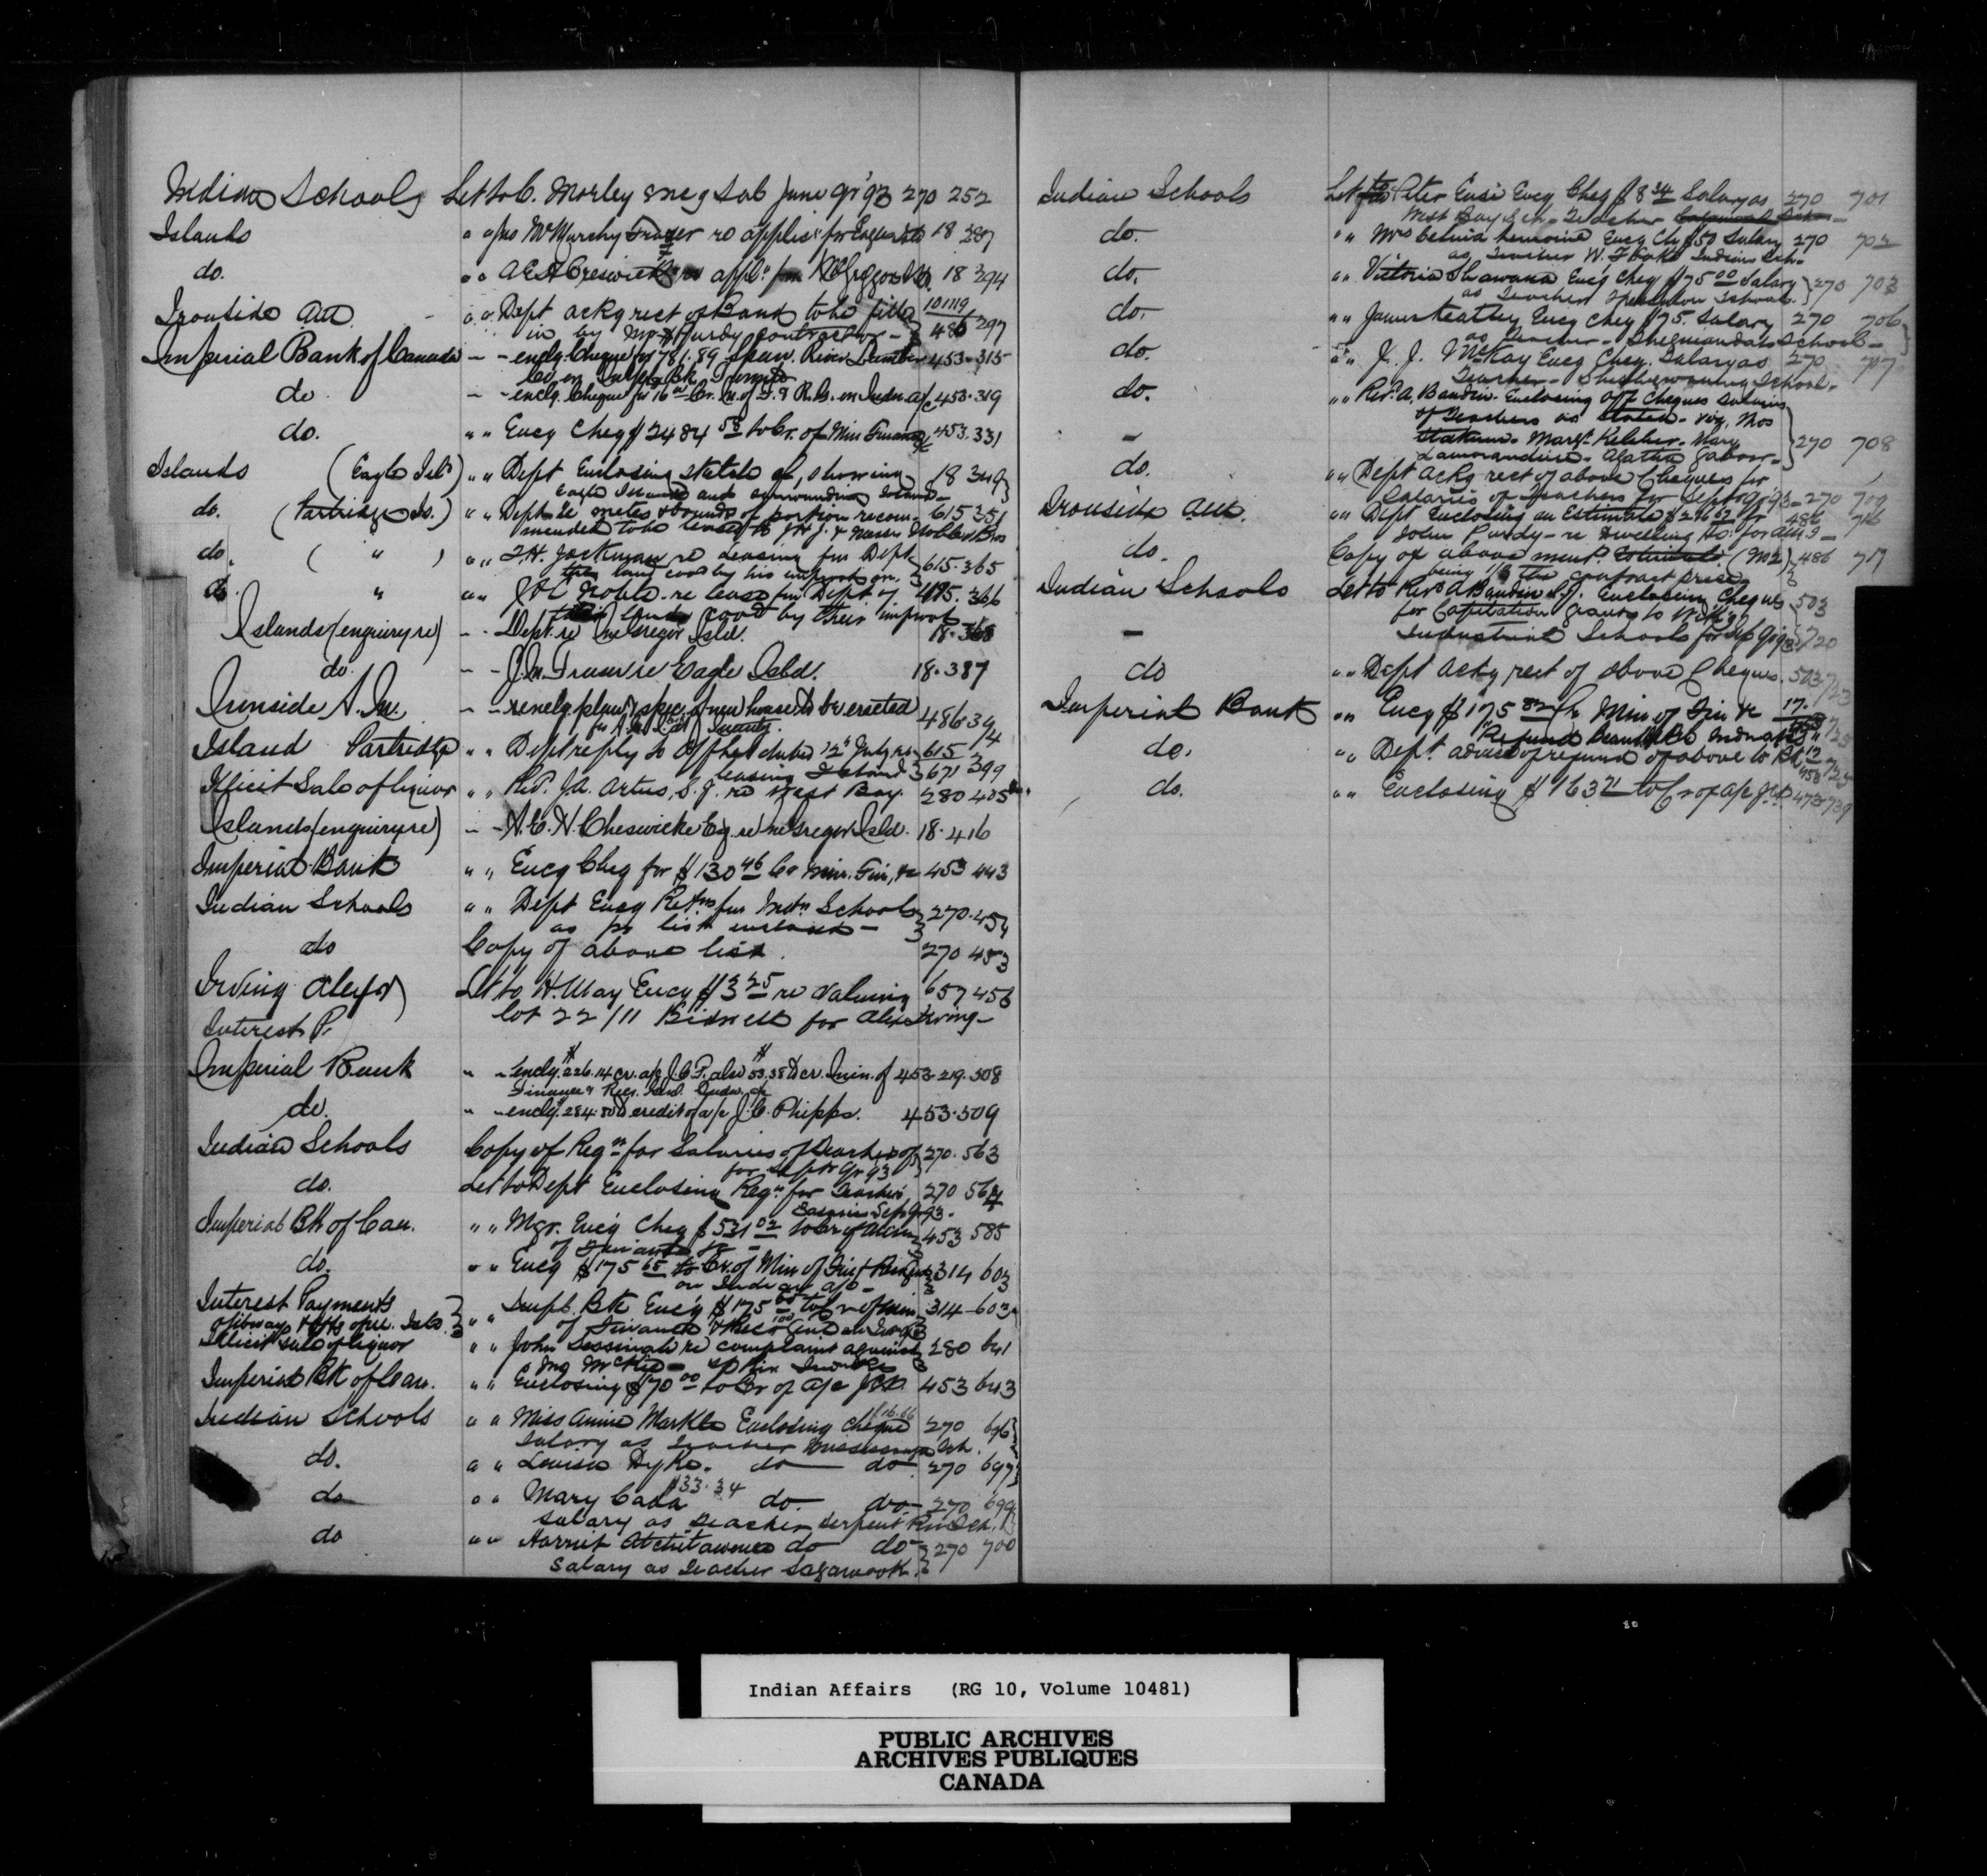 Indian Schools Let to C. Morley encg Sal June qr '93 270 252
Islands " " Jno McMurchy Fraser re applic for Eagle Isld 18 287
do. " " re appln for 18 394
Ironside AM " " Dept ackg rect of Bond to be filled 10119
in by Mr Purdy contractor - 486 297
Imperial Bank of Canada - - enclg. Cheque for 781.89 Span. River Lumber 453.315
Co on Bk
do - - enclg. Cheque for 16 Cr. M. of F. & R. G. on Indn a/c 453.319
do. " " Encg Cheq $2484 58 to Cr. of Min Finance &c 453.331
Islands (Eagle Isld) " " Dept Enclosing sketch of, showing 18 349
Eagle Island and surrounding Islands -
do. (Partridge Is.) " " Dept re metes & bounds of portion recom- 615 351
mended to be leased to J.H.J. & Messrs Noble Bros
do. ( " ) " " J.H. Jackman re Leasing fm Dept 615.365
the land cov'd by his improvts on.
do. " " " J & C Noble re lease fm Dept of 615.366
their land cov'd by their improvts
Islands (enquiry re) - - Dept. re McGregor Isld. 18.368
do. - - J.M. Fraser re Eagle Isld. 18.387
Ironside A.M. - - re enclg. plan & spec. of new house to be erected 486 394
for A.M.I. by J. Purdy.
Island Partridge " " Dept reply to Off Let dated 12th July re 615
leasing Island 3671 399
Illicit Sale of liquor " " Rev. J.A. Artus, S.J. re West Bay. 280 405
Islands (enquiry re) - - A.E.H. Creswicke Esq. re McGregor Isld. 18.416
Imperial Bank " " Encg Cheq for $130 46 Cr Min. Fin, &c 453 443
Indian Schools " " Dept Encg Retns for Indn Schools 270.454
as pr list enclosed -
do Copy of above list. 270 453
Irving Alexr Let to H. May Encg $3 25 re valuing 657 456
lot 22/11 Bidwell for Alex Irving -
Interest P.
Imperial Bank " - enclg. $226.14 cr. a/c J.C.P. also $53.38 to cr. Min. of 453-219.508
Finance & Recr. Genl. Indn. a/c
do. " - enclg. 284.80 to credit of a/c J.C. Phipps. 453.509
Indian Schools Copy of Reqn for Salaries of Teachers of 270.563
for Septr Qr 93
do. Let to Dept Enclosing Reqn for Teachers 270 564
Salaries Sept Qr 93.
Imperial Bk of Can. " " Mgr. Encg Cheq $531 02 to Cr of Min 453 585
of Finance &c -
do. " " Encg $175 65 to Cr. of Min of Fin & Rec Gen 314 603
on Indian a/c -
Interest Payments " " Impl. Bk Encg $175 to Cr of Min 314-603
Ojibways & Otts opn. Isls. of Finance & Recr Genl on Ind a/c
Illicit Sale of liquor " " John re complaint against 280 641
Jno McKie - selling Indns
Imperial Bk of Can. " " Enclosing $70 00 to Cr of a/c J.C.P. 453 643
Indian Schools " " Miss Annie Markle Enclosing Cheque $16.66 270 696
Salary as Teacher Mississauga Sch.
do. " " Louisa Dyke. do do 270 697
do " " Mary Cada $33.34 do. do 270 699
Salary as Teacher Serpent Riv Sch.
do " " Harriet do do 270 700
Salary as Teacher Sagamook.
Indian Schools Let to Peter Encg Cheq $8 34 Salary as 270 701
West Bay Sch - Teacher
do. " " Mrs Lemoine Encg Ch $50 Salary 270 702
as Teacher W. F Lake Indian Sch.
do. " " Victoria Shawana Encg Cheq $75 00 Salary 270 703
as Teacher Schools.
do. " " James Keatley Encg Cheq $75. Salary 270 706
as Teacher - Sheguiandah School -
do. " " J. J. McKay Encg Cheq. Salary as 270 707
Teacher - School -
do. " " Rev. A. Baudin - Enclosing off Cheques Salaries
of Teachers as stated - viz, Mos
- Margt Kelcher - Mary 270 708
Lamorandiere - Agatha Gabow -
do. " " Dept ackg rect of above Cheques for
Salaries of Teachers for Septr Qr 93 - 270 709
Ironside AM. " " Dept Enclosing an Estimate $216 67 for 486 716
John Purdy - re Dwelling Ho. for AMI -
do. Copy of above ment. (M2) 486 717
being 1/3 the contract price
Indian Schools Let to Revd A Baudin S.J. Enclosing Cheques 503
for Capitation grants to Wikg
- Industrial Schools for Sep Qr 93 720
do " " Dept ackg rect of above Cheques. 503 723
Imperial Bank " " Encg $175 82 Cr Min of Fin &c 17. 725
" Refund Indn a/c "
do. " " Dept. advice of refund of above to Bk 725
do. " " Enclosing $163 21 to Cr of a/c J.C.P. 473-739
80
Indian Affairs (RG 10, Volume 10481)
PUBLIC ARCHIVES
ARCHIVES PUBLIQUES
CANADA